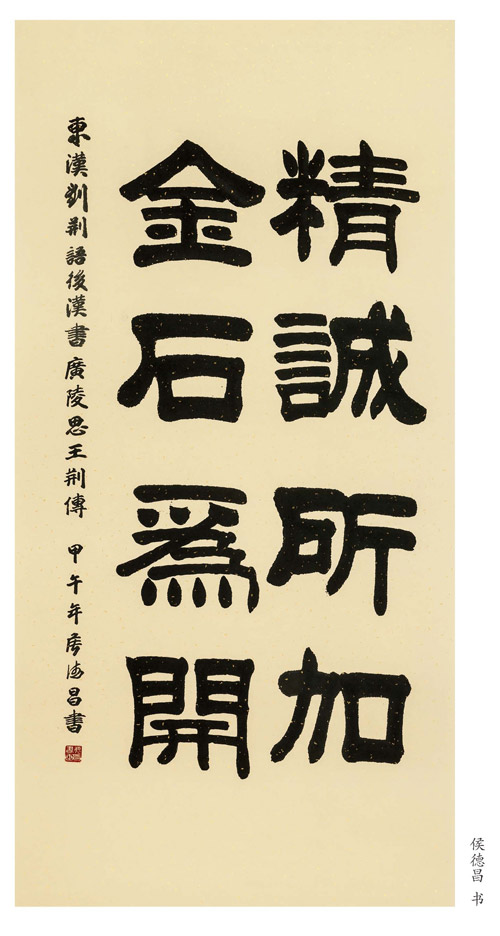 精誠所加
金石爲開
東漢劉荊語後漢書廣陵思王荊傳 甲午年侯德昌書
侯德昌 书